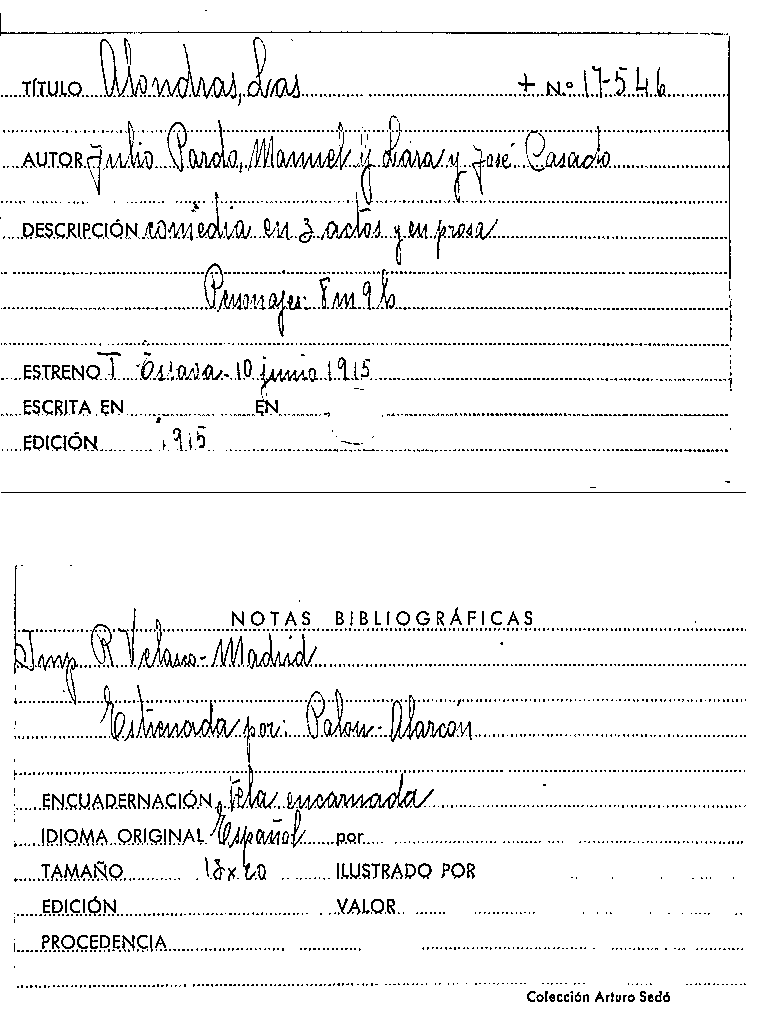 TÍTULO Alondras, Las + N.º 17-546
AUTOR Julio Pardo, Manuel y Lara y José Casado
DESCRIPCIÓN comedia en 3 actos y en prosa
Personajes: 8 m 9 h
ESTRENO T Eslava - 10 junio 1915
ESCRITA EN EN
EDICIÓN 1915
NOTAS BIBLIOGRÁFICAS
Imp R Velasco - Madrid
Estrenada por: Palou - Alarcón
ENCUADERNACIÓN Tela encarnada
IDIOMA ORIGINAL Español por
TAMAÑO 13 x 20 ILUSTRADO POR
EDICIÓN VALOR
PROCEDENCIA
Colección Arturo Sedó